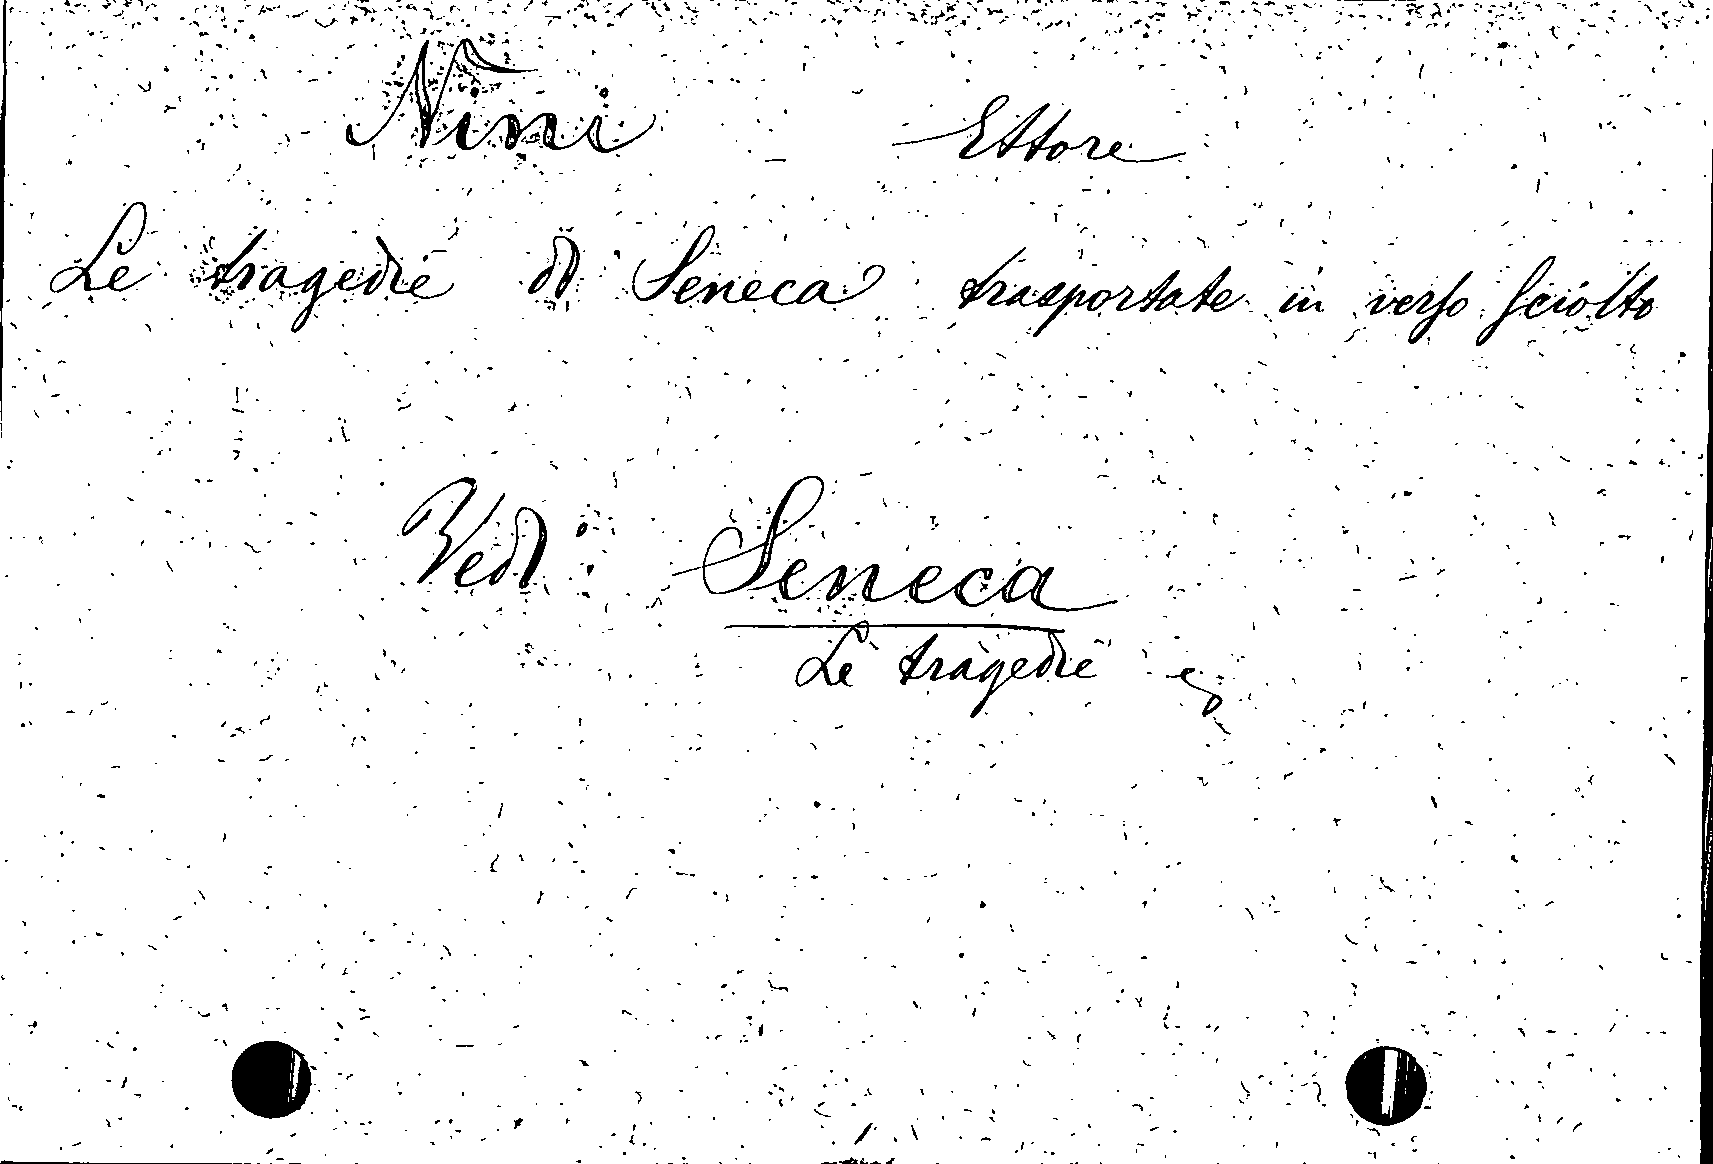 Nini Ettore
Le tragedie di Seneca trasportate in verso sciolto
Vedi: Seneca
Le tragedie